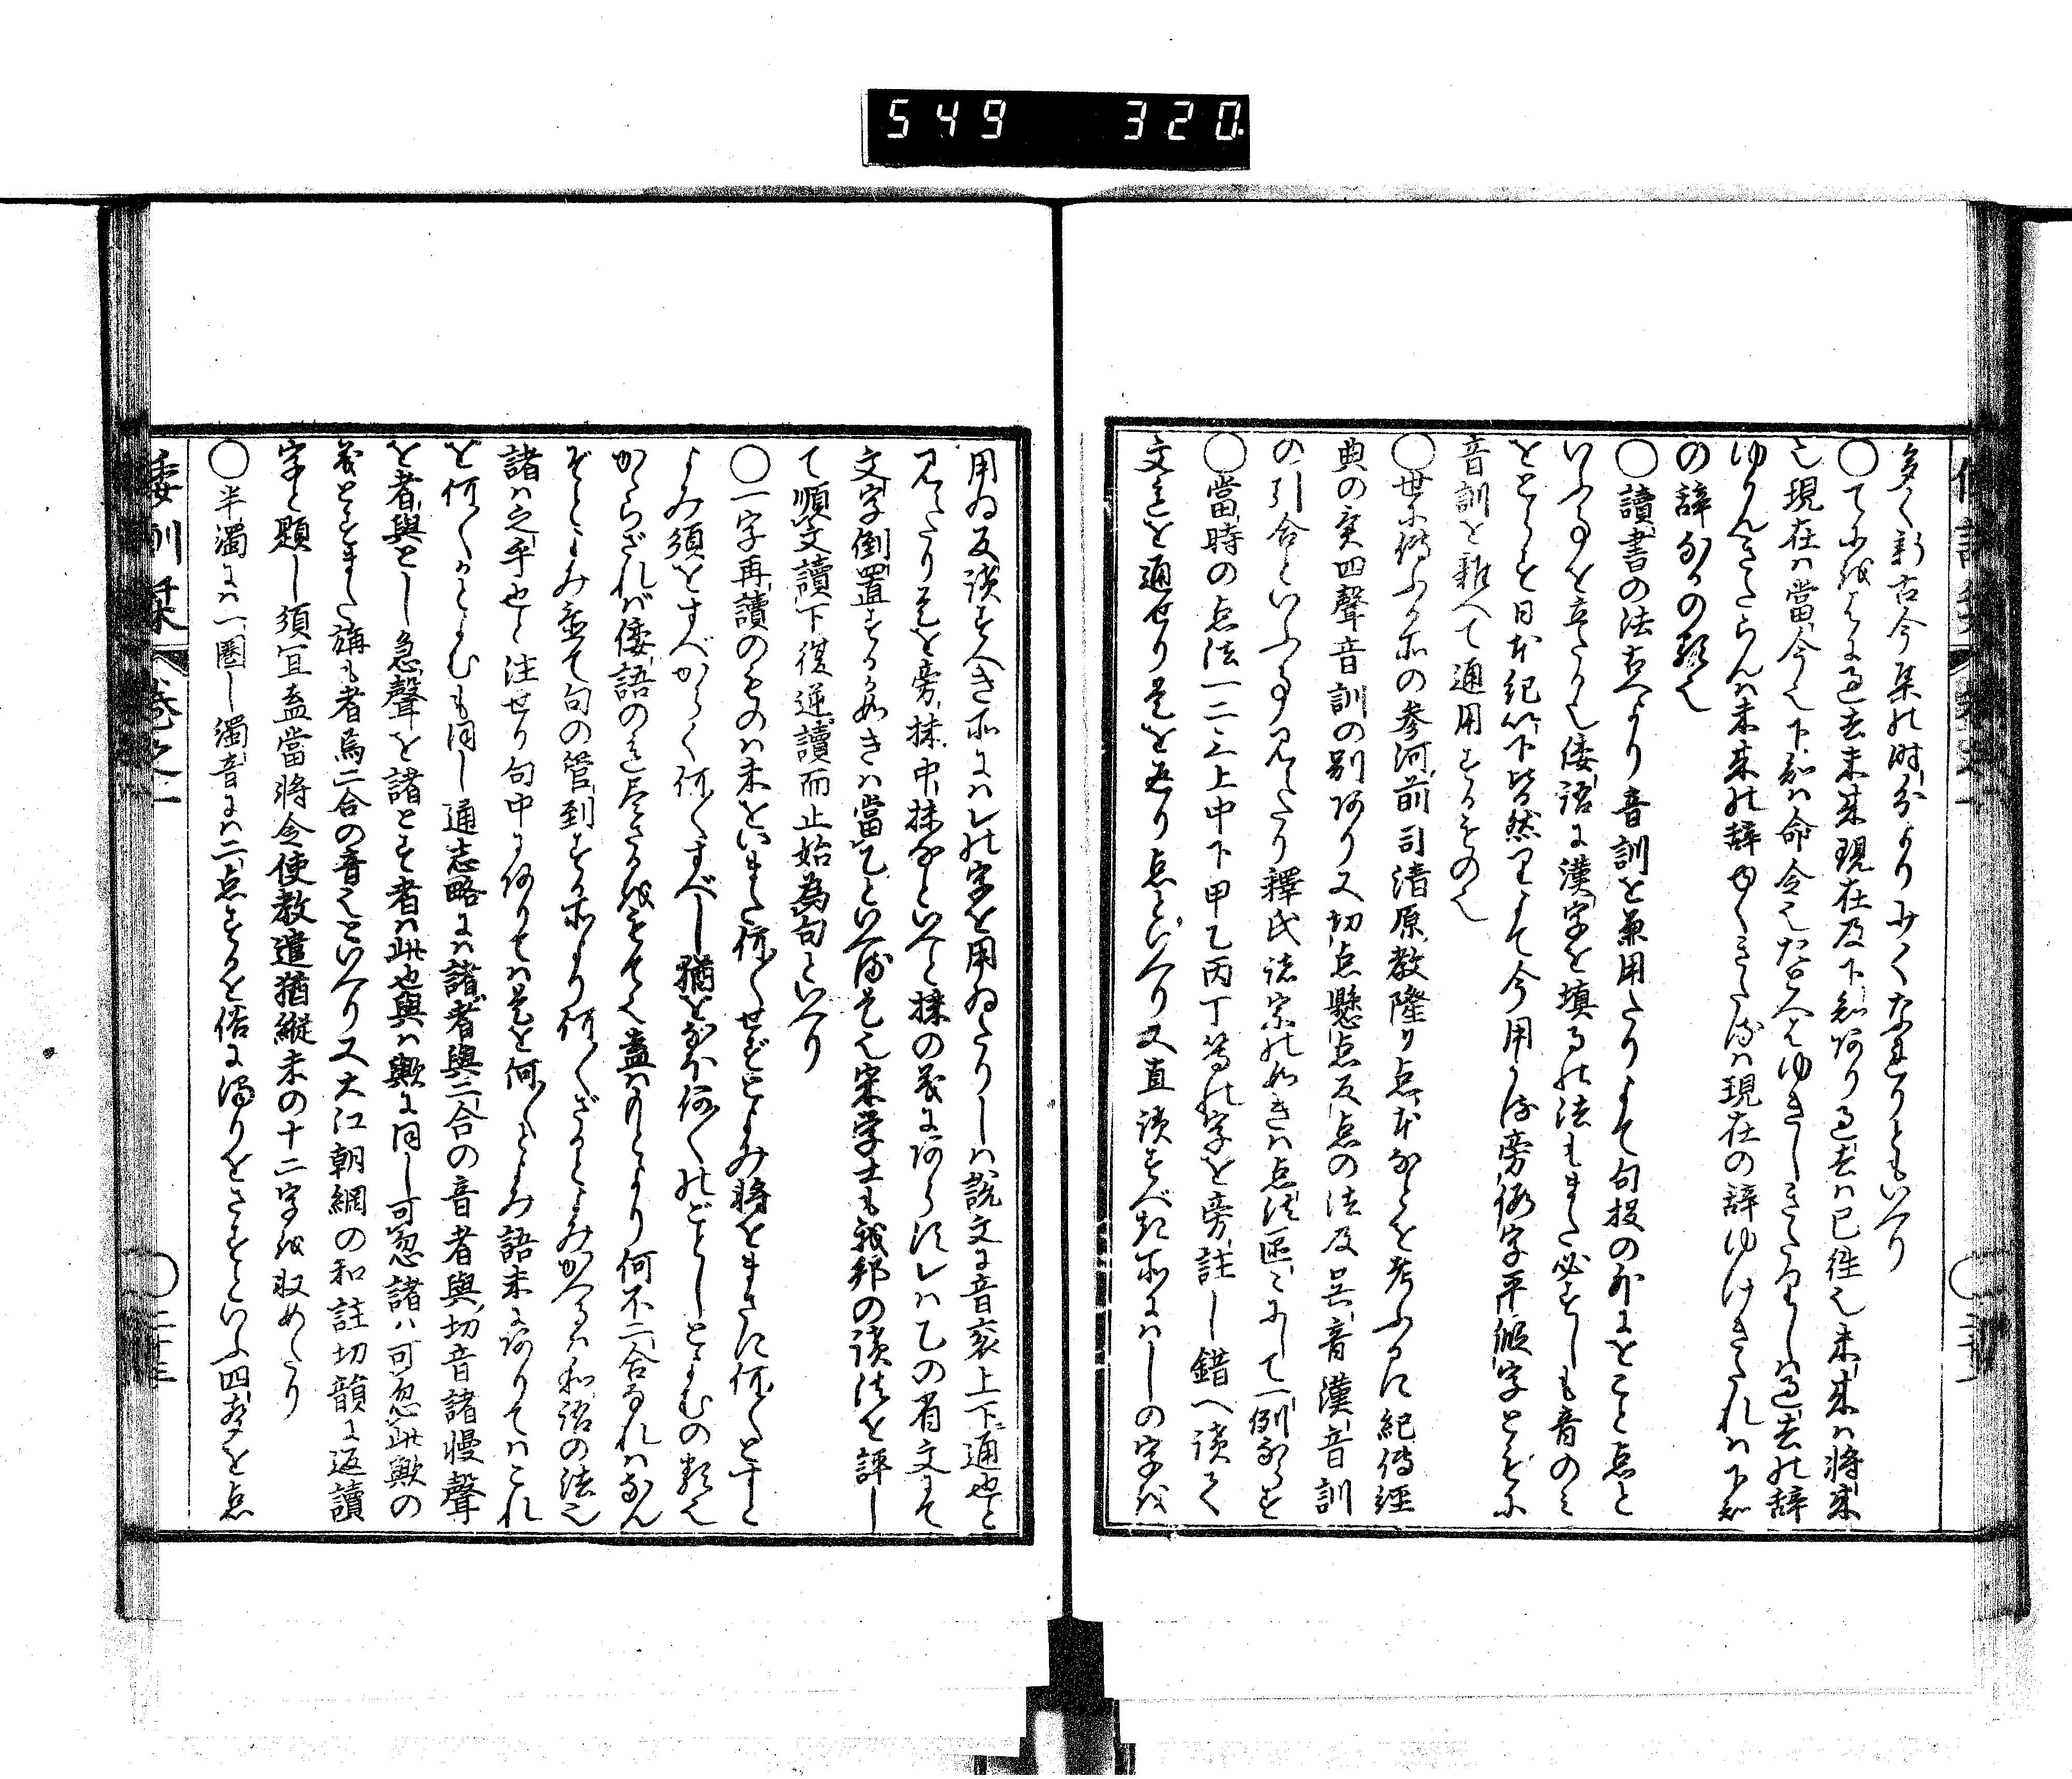 549 320
多く新古今集の時分よりみくなれりともいへり
○てにをはに過去未来現在及下知あり過去は已往也未来は将来
也現在は當今也下知は命令也たとへはゆきしきたりしは過去の辞
ゆかんきたらんは未来の辞ゆくきたるは現在の辞ゆけきたれは下知
の辞なるの類也
○讀書の法古へより音訓を兼用たりよて句投の外にをこと点と
いふ事を立たり也倭語に漢字を填るの法もまた必すしも音のみ
をとらす日本紀以下皆然りよて今用る傍仮字平假字ともに
音訓を雜へて通用するもの也
○世に傳ふる所の参河前司清原教隆り点本なとを考ふるに紀傳経
典の実四聲音訓の別あり又切点懸点反点の法及呉音漢音訓
の引合といふ事見えたり釋氏諸宗の如きは点法区々にして一例ならす
○當時の点法一二三上中下甲乙丙丁等の字を旁註し錯へ讀て
文意を通せり是を返り点といへり又直讀すへき所にはしの字を
用ゐ反讀すへき所にはレの字を用ゐたりしは説文に音衺上下通也と
見えたり是を旁抹中抹なといへと抹の義にあらすレは乙の省文にて
文字倒置するか如きは當乙といへる是也宋学士も我邦の讀法を評し
て順文讀下復逆讀而止始為句といへり
○一字再讀のものは未をいまた何々せずとよみ将をまさに何々とすと
よみ須をすべからく何々すべし猶をなほ何々のごとしとよむの類也
かゝらざれば倭語の意尽さるをもて也盍はもとより何不二合なれはなん
ぞとよみ盡て句の管到する所より何々ざるとよみかへるは和語の法也
諸は之乎也と注せり句中にありては是を何々とよみ語末にありてはこれ
を何々かとよむも同し通志略には諸者與二合の音者與切音諸慢聲
を者與とし急聲を諸とす者は此也與は歟に同し可忽諸は可忽此歟の
義とすまた旃も者焉二合の音也といへり又大江朝綱の和註切韻に返讀
字と題し須宜盍當将令使教遣猶縱未の十二字を収めたり
○半濁には一圏し濁音には二点するを俗に濁りをさすといふ四聲を点
倭訓栞 巻之一